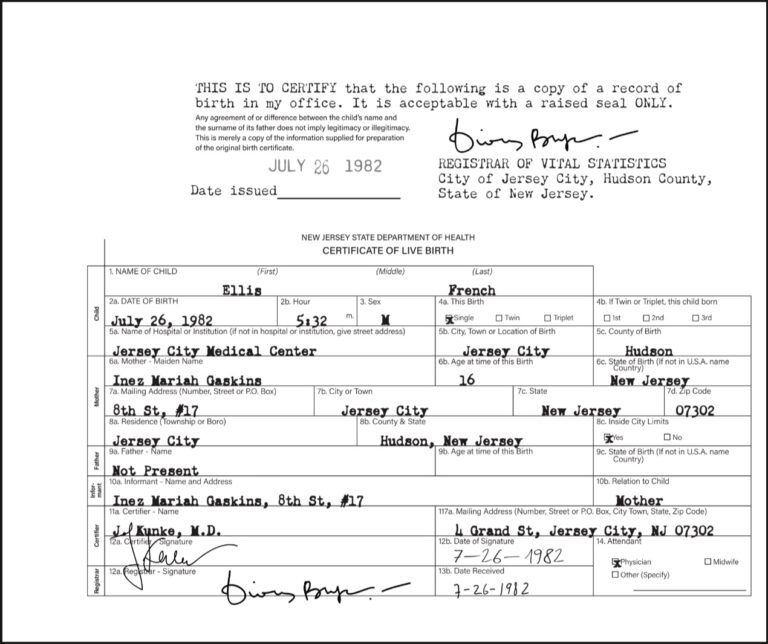 THIS IS TO CERTIFY that the following is a copy of a record of
birth in my office. It is acceptable with a raised seal ONLY.
Any agreement of or difference between the child's name and
the surname of its father does not imply legitimacy or illegitimacy.
This is merely a copy of the information supplied for preparation
of the original birth certificate.
JULY 26 1982
Date issued
REGISTRAR OF VITAL STATISTICS
City of Jersey City, Hudson County,
State of New Jersey.
NEW JERSEY STATE DEPARTMENT OF HEALTH
CERTIFICATE OF LIVE BIRTH
Child
1. NAME OF CHILD (First) (Middle) (Last)
Ellis French
2a. DATE OF BIRTH 2b. Hour 3. Sex 4a. This Birth 4b. If Twin or Triplet, this child born
July 26, 1982 5:32 m. M Single Twin Triplet 1st 2nd 3rd
5a. Name of Hospital or Institution (if not in hospital or institution, give street address) 5b. City, Town or Location of Birth 5c. County of Birth
Jersey City Medical Center Jersey City Hudson
Mother
6a. Mother - Maiden Name 6b. Age at time of this Birth 6c. State of Birth (If not in U.S.A. name
Country)
Inez Mariah Gaskins 16 New Jersey
7a. Mailing Address (Number, Street or P.O. Box) 7b. City or Town 7c. State 7d. Zip Code
8th St, #17 Jersey City New Jersey 07302
8a. Residence (Township or Boro) 8b. County & State 8c. Inside City Limits
Jersey City Hudson, New Jersey Yes No
Father
9a. Father - Name 9b. Age at time of this Birth 9c. State of Birth (If not in U.S.A. name
Country)
Not Present
Infor-
ment
10a. Informant - Name and Address 10b. Relation to Child
Inez Mariah Gaskins, 8th St, #17 Mother
Certifier
11a. Certifier - Name 117a. Mailing Address (Number, Street or P.O. Box, City Town, State, Zip Code)
J. Kunke, M.D. 4 Grand St, Jersey City, NJ 07302
12a. Certifier - Signature 12b. Date of Signature 14. Attendant
7-26-1982
Physician Midwife
Registrar
12a. Registrar - Signature 13b. Date Received Other (Specify)
7-26-1982